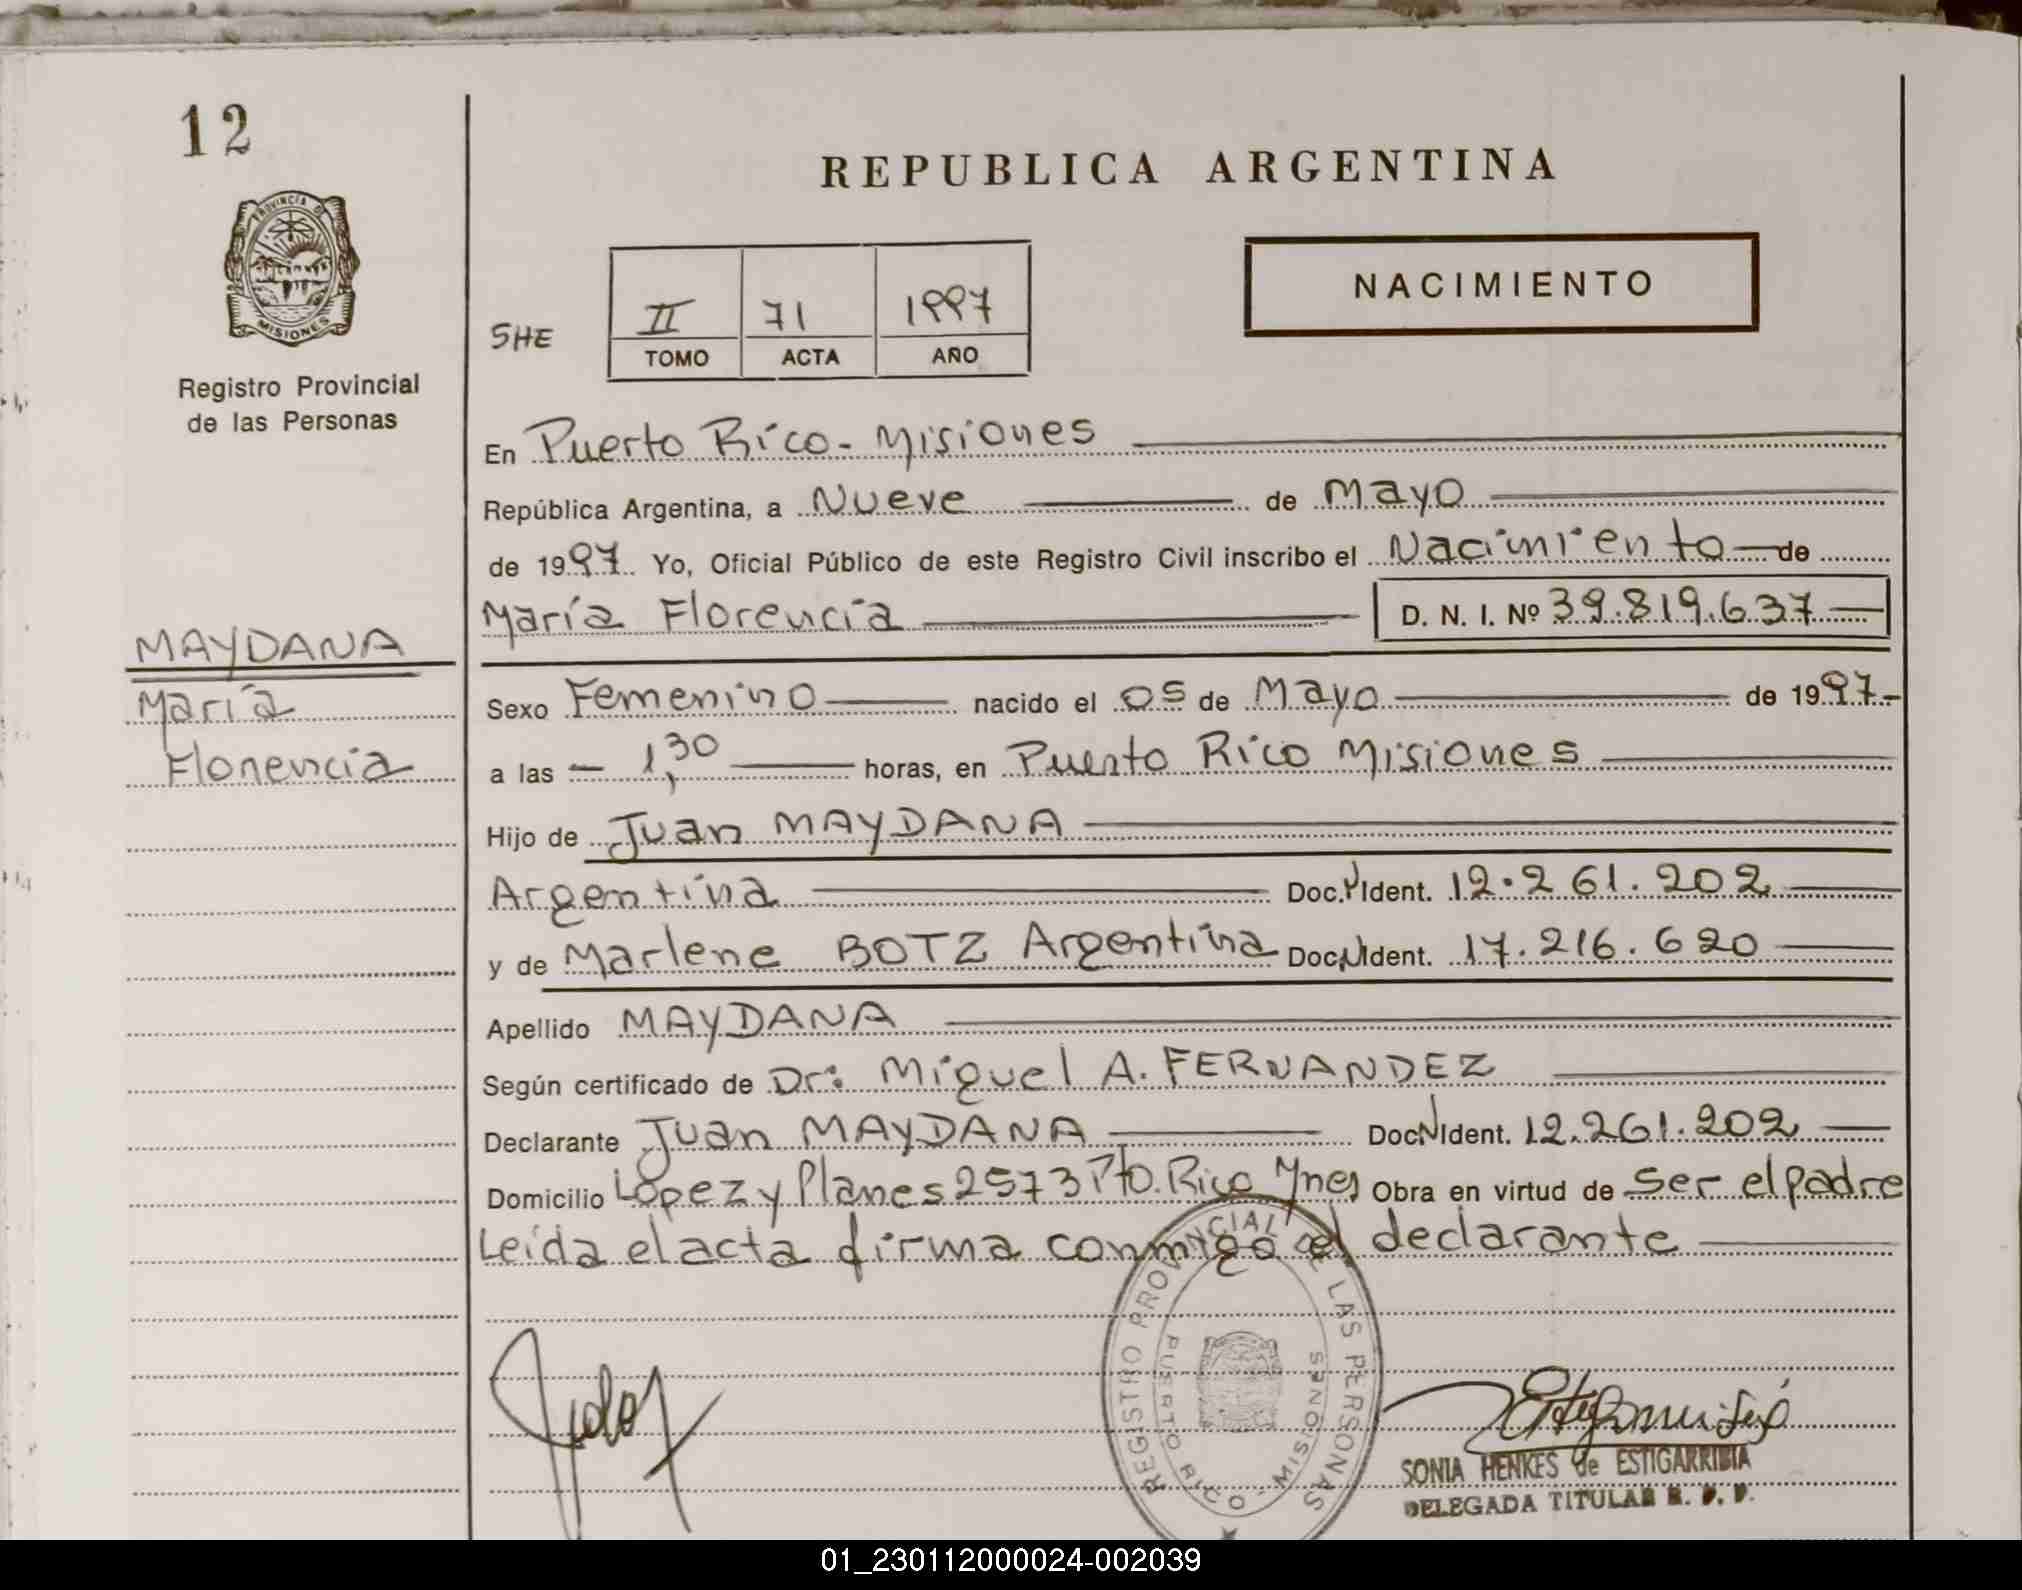 12
REPUBLICA ARGENTINA
PROVINCIA DE
MISIONES
NACIMIENTO
SHE
II 71 1997
TOMO ACTA AÑO
Registro Provincial
de las Personas
En Puerto Rico - Misiones
República Argentina, a Nueve de Mayo
de 1997 Yo, Oficial Público de este Registro Civil inscribo el Nacimiento de
María Florencia D. N. I. Nº 39.819.637
MAYDANA
María
Florencia
Sexo Femenino nacido el 05 de Mayo de 1997-
a las 1,30 horas, en Puerto Rico Misiones
Hijo de Juan MAYDANA
Argentina Doc. Ident. 12.261.202
y de Marlene BOTZ Argentina Doc. Ident. 17.216.620
Apellido MAYDANA
Según certificado de Dr: Miguel A. FERNANDEZ
Declarante Juan MAYDANA Doc N Ident. 12.261.202
Domicilio López y Planes 2573 Pto. Rico Mnes Obra en virtud de ser el padre
Leída el acta firma conmigo el declarante
REGISTRO PROVINCIAL DE LAS PERSONAS
PUERTO RICO - MISIONES
SONIA HENKES de ESTIGARRIBIA
DELEGADA TITULAR R. P. P.
01_230112000024-002039